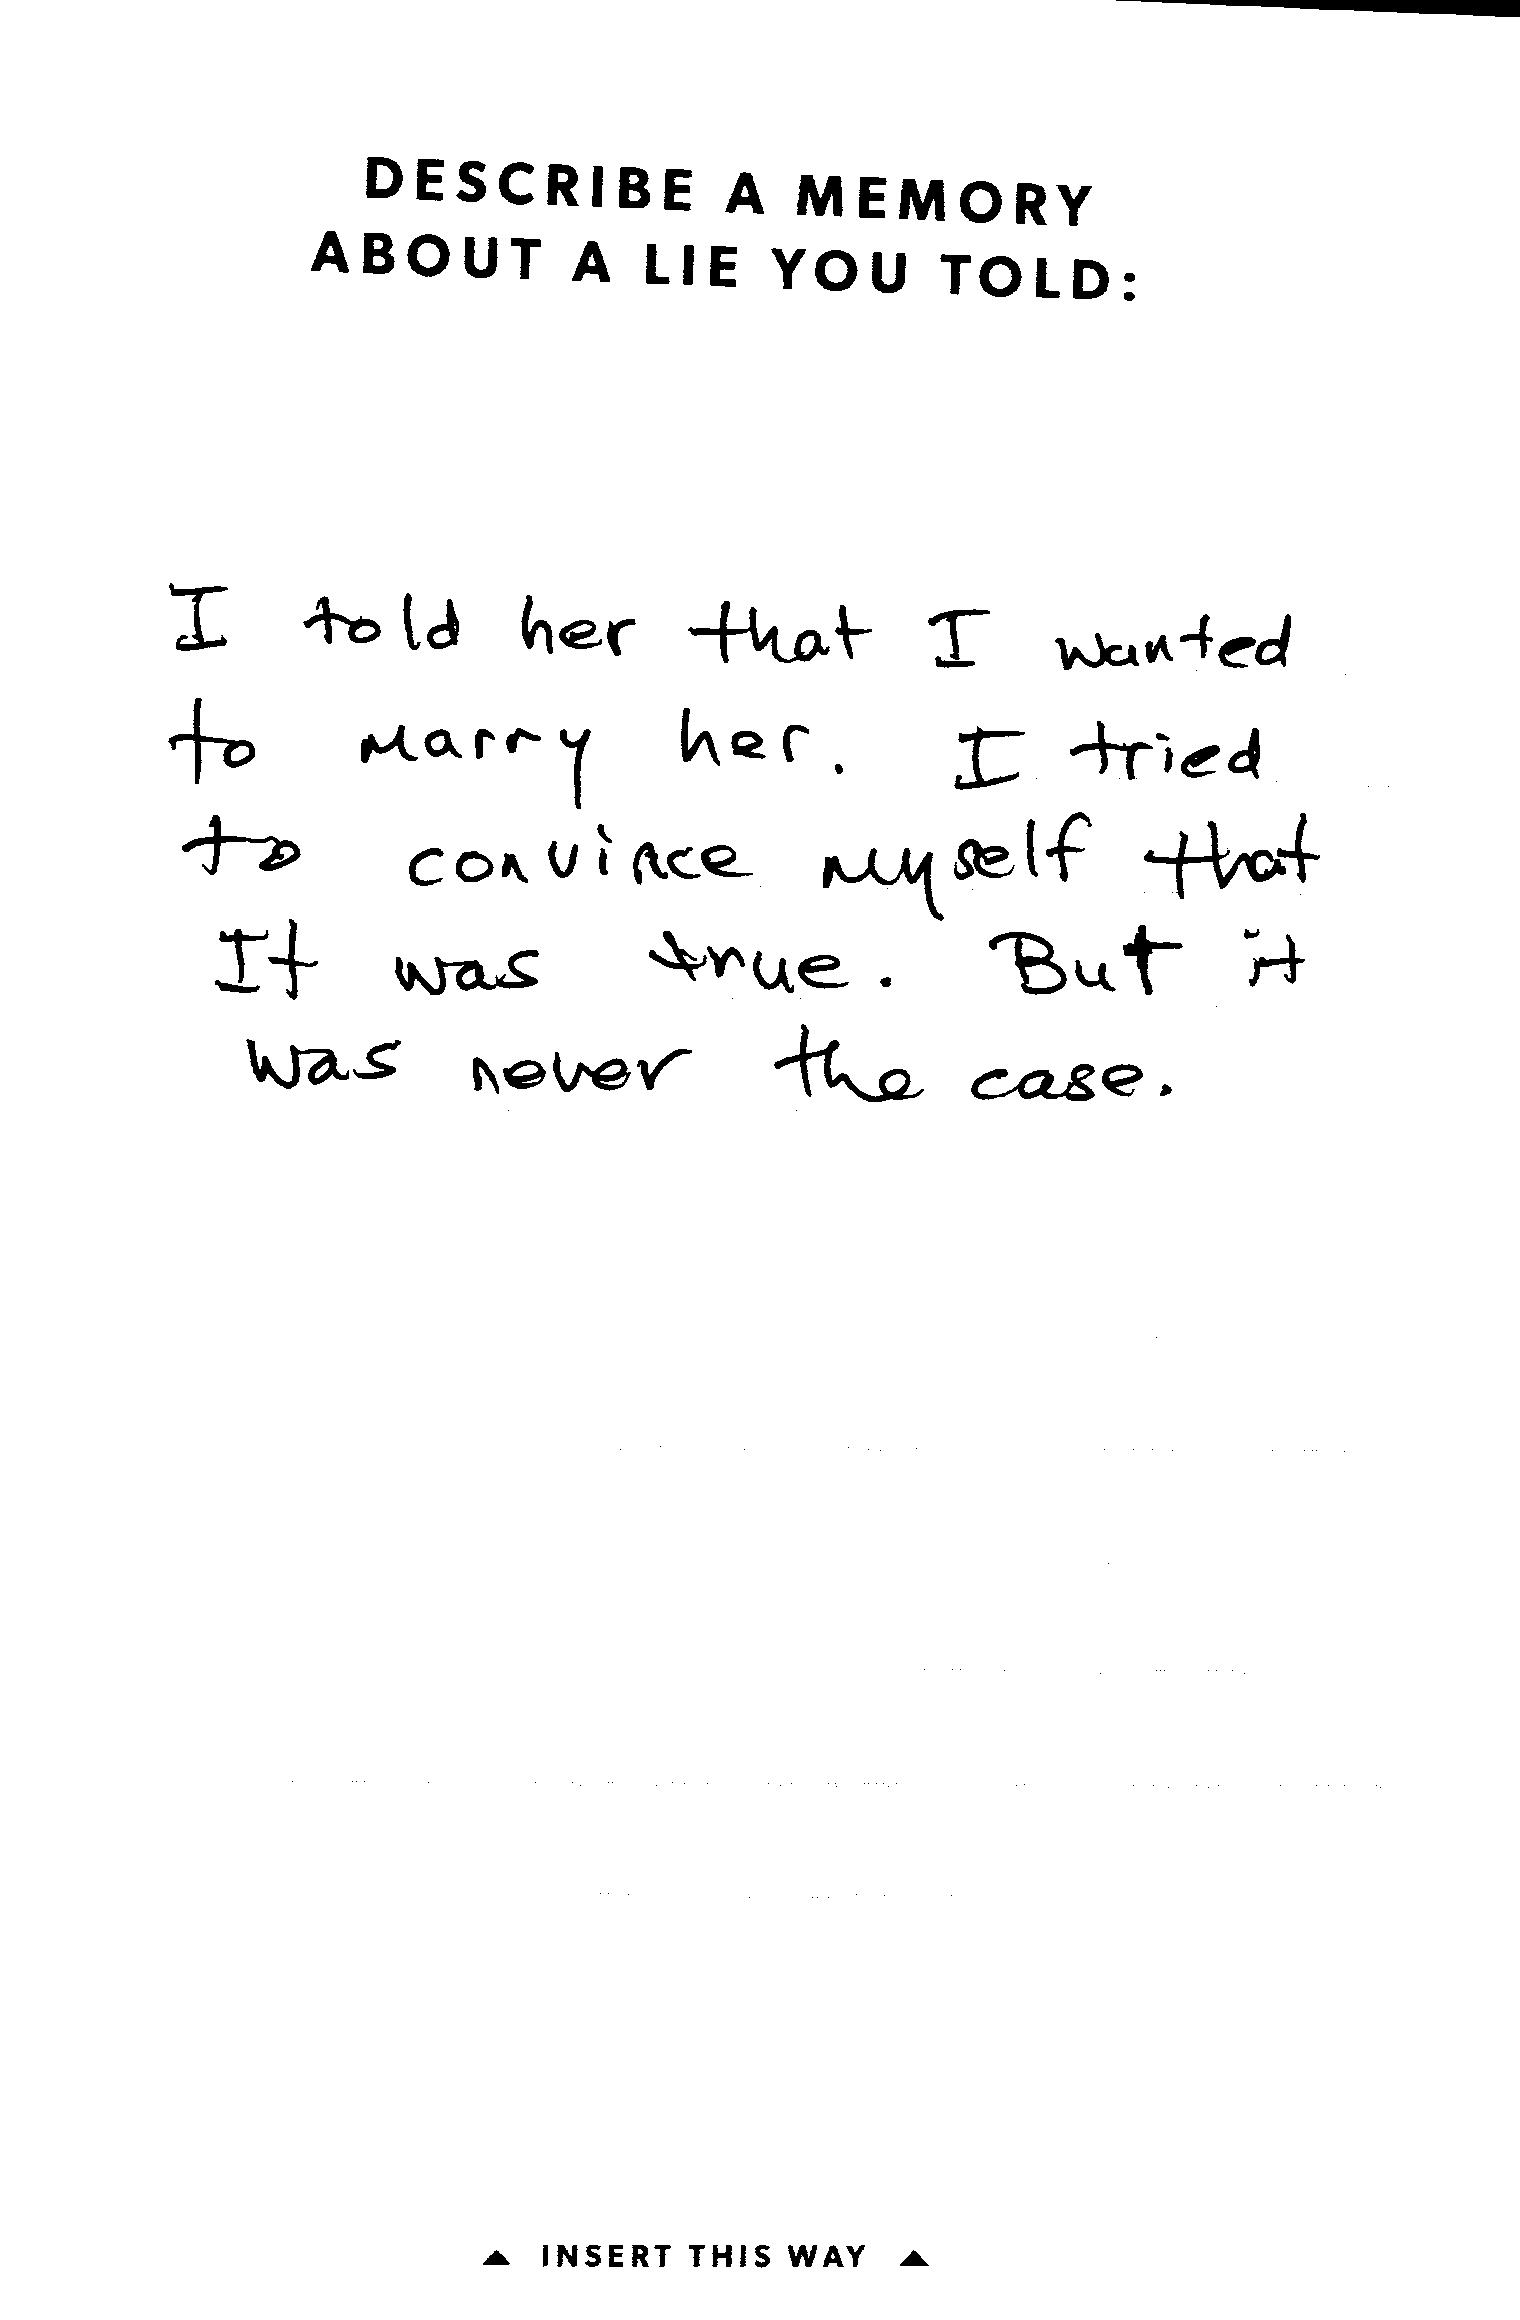 DESCRIBE A MEMORY
ABOUT A LIE YOU TOLD:
I told her that I wanted
to marry her. I tried
to convince myself that
It was true. But it
was never the case.
▲ INSERT THIS WAY ▲